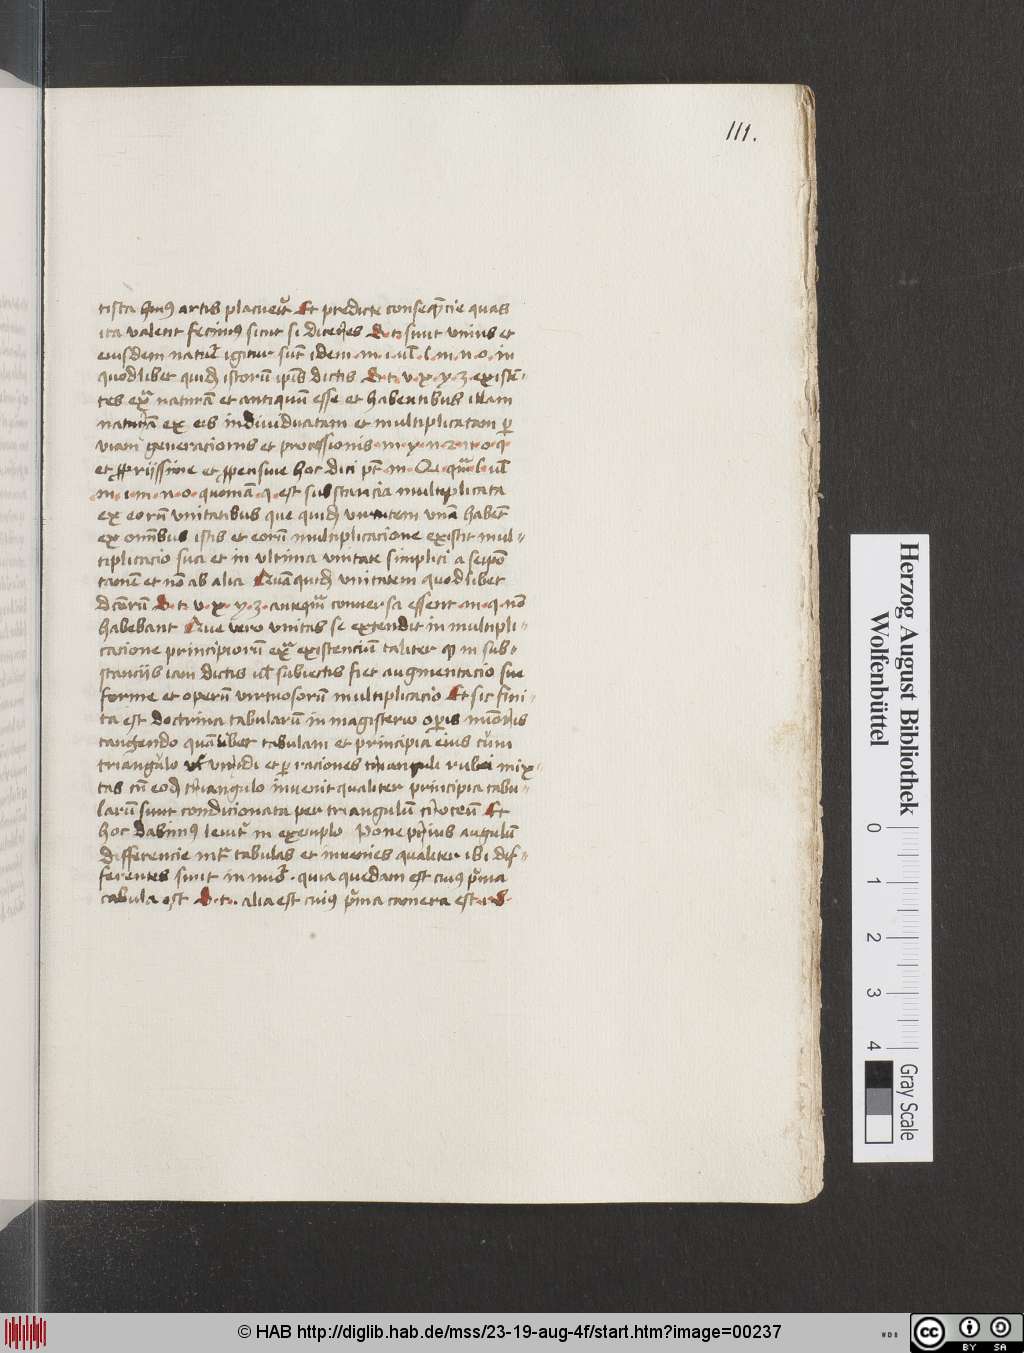 111.
tista huiꝰ artis placuerit Et predicte conseque̅cie quas
ita valent fecimꝰ sicut si diceres d· t· sunt vnius et
eiusdem nature igitur sunt idem m· i· ul̅ l· m· n· o· in
quodlibet quidem istorum ipsis dictis d· t· v· x· y· z· existen-
tes extra naturā et antiquū esse et habentibus illam
naturam ex eis indiuiduatam et multiplicatam per
viam generacionis et processionis
et propriissime et hoc dici
m· i· m· n· o· quoniā q· est substancia multiplicata
ex eorū vnitatibus que quidem virtutem vnā habent
ex omnibus istis et eorū multiplicacione existit mul-
tiplicacio sua et in vltima vnitate simplici a
et nō ab alia Quā quidem vnitatem quodlibet
d· t· v· x· y· z· antequam conuersa essent m· q· nō
habebant Que vero vnitas se extendit in multipli-
cacione principiorū extra existenciū taliter in sub-
stanciis iam dictis ul̅ subiectis fiet augmentacio sue
forme et operū virtuosorū multiplicacio Et sic fini-
ta est doctrina tabularū in magisterio operis
tangendo quālibet tabulam et principia eius cum
triangulo viridi et per raciones trianguli rubei mix-
tas cū eodem triangulo inuenit qualiter principia tabu-
larū sunt condicionata per triangulū croceū Et
hoc dabimꝰ leuiter in exemplo Pone prius angulū
differencie inter tabulas et inuenies qualiter ibi dif-
ferentes sunt in · quia quedam est cuiꝰ prima
tabula est b· t· alia est cuiꝰ prima camera est
Herzog August Bibliothek
Wolfenbüttel
0 1 2 3 4
Gray Scale
© HAB http://diglib.hab.de/mss/23-19-aug-4f/start.htm?image=00237
WDB
cc BY SA